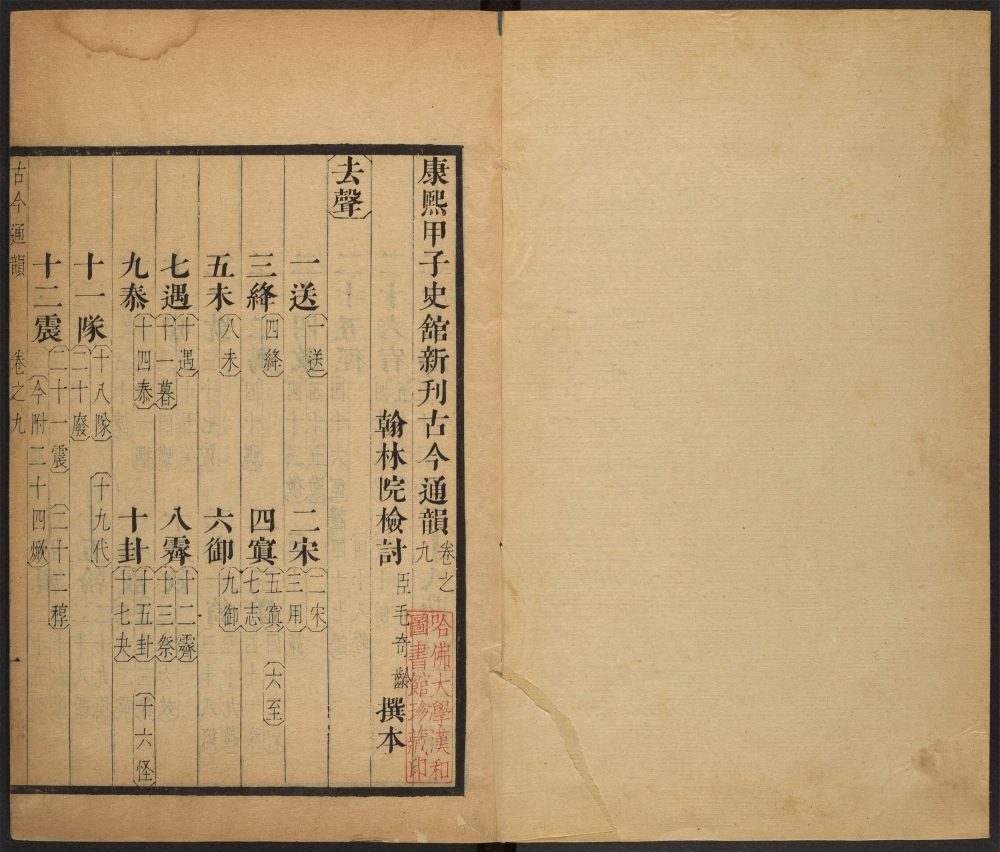 康熙甲子史舘新刊古今通韻卷之九
翰林院檢討臣毛奇齡撰本
去聲
一送十送　二宋二宋三用
三絳四絳　四寘五寘六至七志
五未八未　六御九御
七遇十遇十一暮　八霽十二霽十三祭
九泰十四泰　十卦十五卦十六怪十七夬
十一隊十八隊十九代二十廢
十二震二十一震二十二稕今附二十四焮
古今通韻　卷之九　一
哈佛大學漢和
圖書館珍藏印